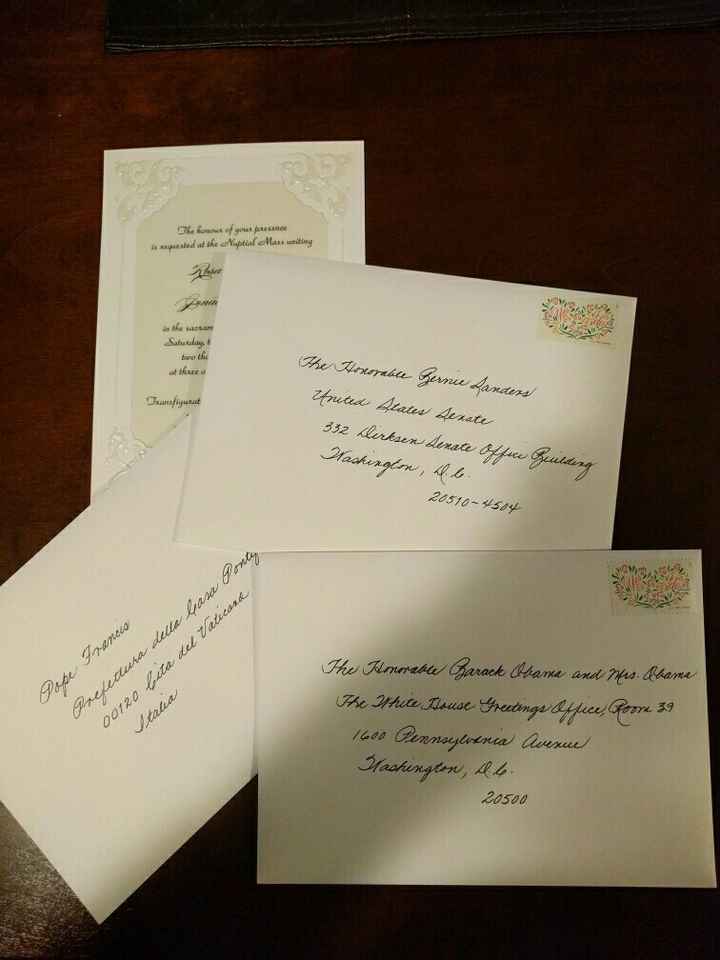 The honour of your presence
is requested at the Nuptial Mass uniting
in the sacram
Saturday, t
two tho
at three o
Transfigurat
The Honorable Bernie Sanders
United States Senate
332 Dirksen Senate Office Building
Washington, D.C.
20510-4504
Pope Francis
Prefettura della Casa Pontif
00120 Citta del Vaticano
Italia
The Honorable Barack Obama and Mrs. Obama
The White House Greetings Office, Room 39
1600 Pennsylvania Avenue
Washington, D.C.
20500